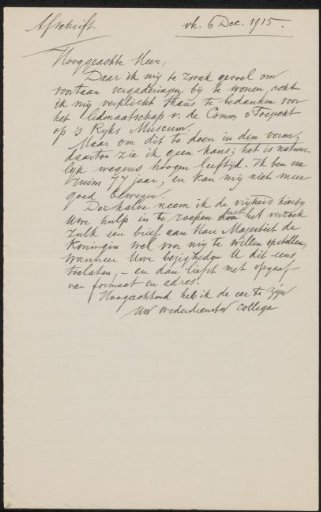 Afschrift
vh. 6 Dec. 1915.
Hooggeachte Heer,
Daar ik mij te zwak gevoel om
voortaan vergaderingen bij te wonen, acht
ik mij verplicht thans te bedanken voor
het lidmaatschap v. de Comm v Toezicht
op 's Rijks Museum.
Maar om dit te doen in den vorm,
daartoe zie ik geen kans; het is natuur-
lijk wegens hoogen leeftijd. Ik ben nu
ruim 77 jaar, en kan mij niet meer
goed bewegen.
Derhalve neem ik de vrijheid hierbij
Uwe hulp in te roepen door het verzoek
zulk een brief aan Hare Majesteit de
Koningin wel voor mij te willen opstellen,
wanneer Uwe bezigheden U dit eens
toelaten, – en dan liefst met opgaaf
van formaat en adres.
Hoogachtend heb ik de eer te zijn
Uw wederdienstw collega